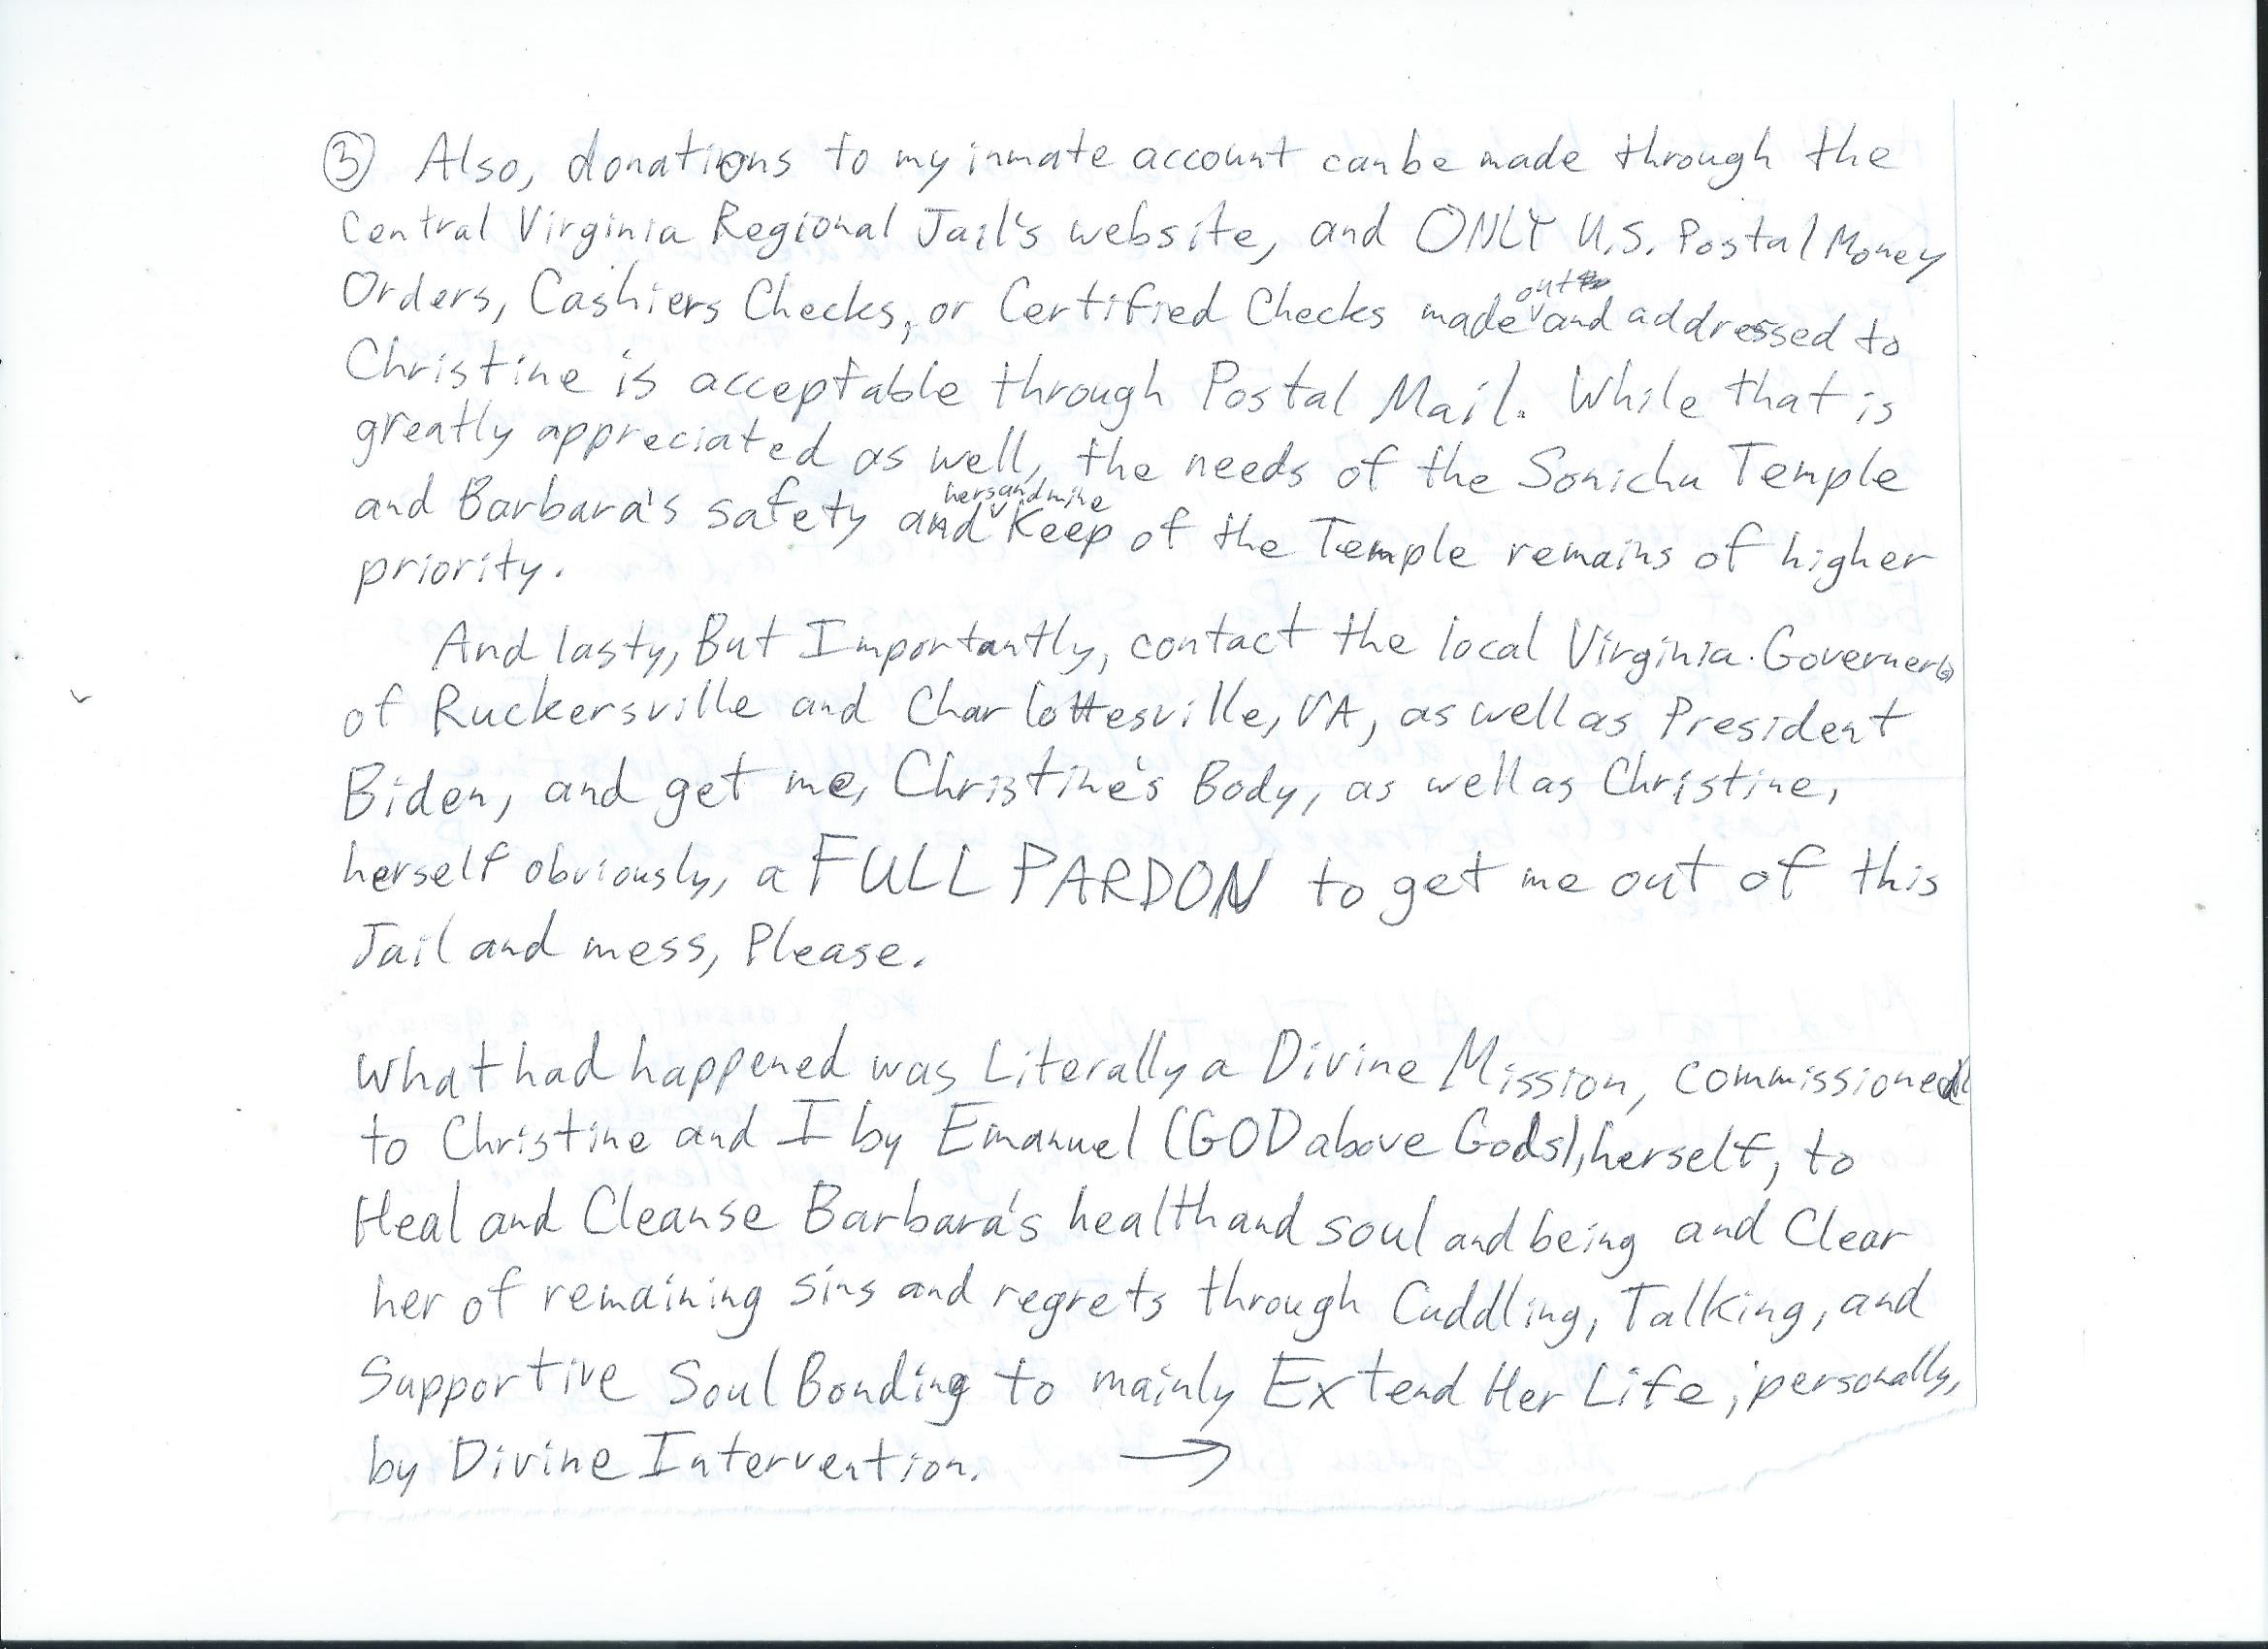 ③ Also, donations to my inmate account can be made through the
Central Virginia Regional Jail's website, and ONLY U.S. Postal Money
Orders, Cashiers Checks, or Certified Checks made out and addressed to
Christine is acceptable through Postal Mail. While that is
greatly appreciated as well, the needs of the Sonichu Temple
and Barbara's safety and hers and mine Keep of the Temple remains of higher
priority.
And lasty, But Importantly, contact the local Virginia Governer(s)
of Ruckersville and Charlottesville, VA, as well as President
Biden, and get me, Christine's Body, as well as Christine,
herself obviously, a FULL PARDON to get me out of this
Jail and mess, Please.
What had happened was Literally a Divine Mission, commissioned
to Christine and I by Emanuel (GOD above Gods), herself, to
Heal and Cleanse Barbara's health and soul and being and Clear
her of remaining sins and regrets through Cuddling, Talking, and
Supportive Soul Bonding to mainly Extend Her Life, personally,
by Divine Intervention. →